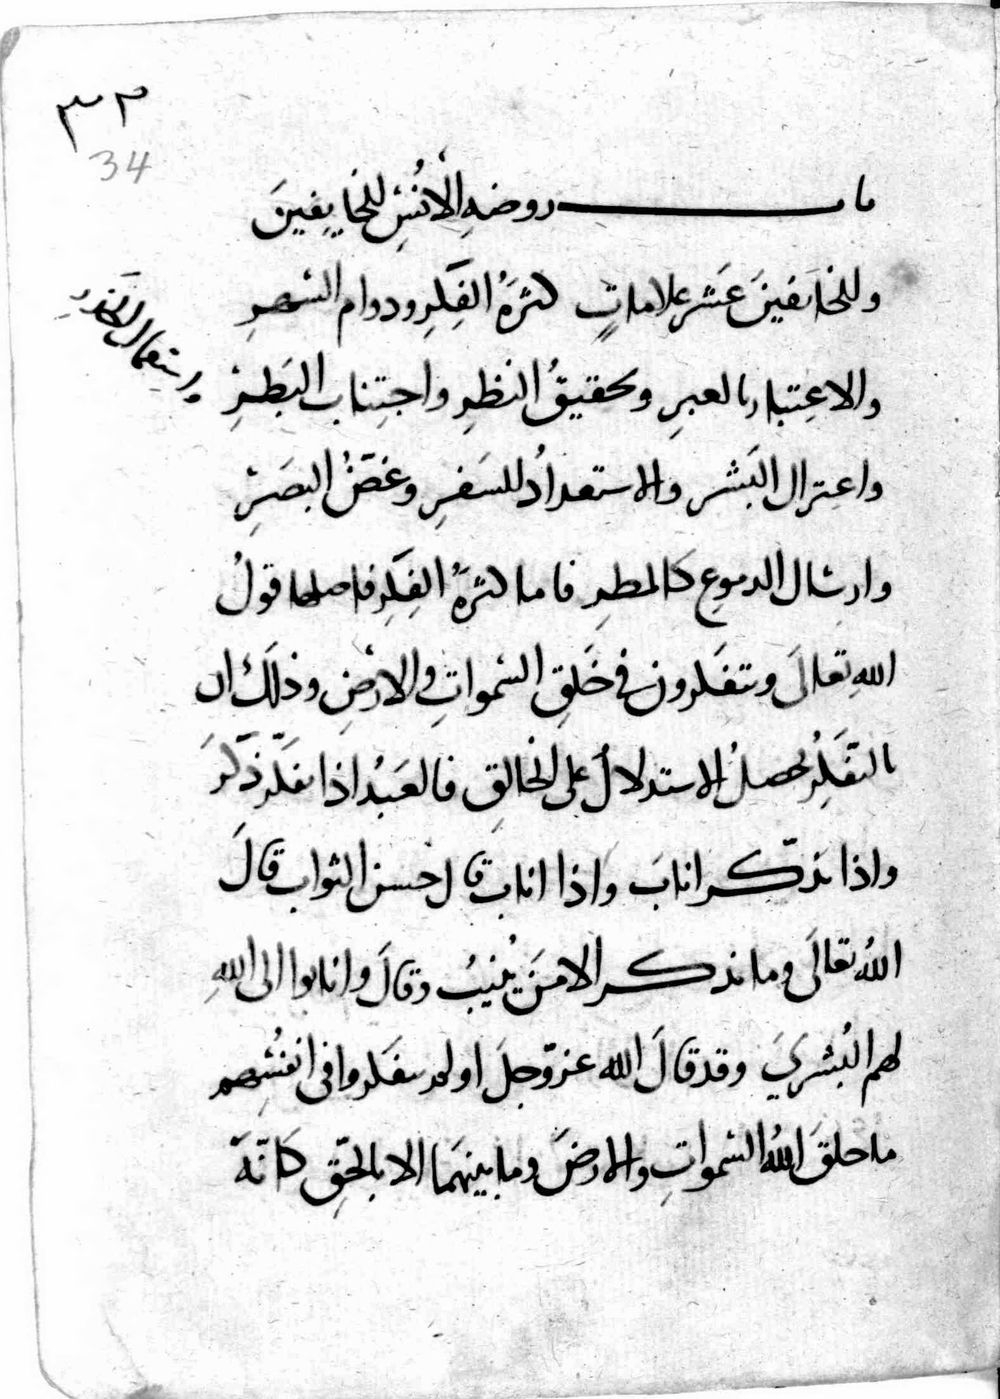 ٣٣
34
باب روضه الأُنْسِ للخايفينَ
وللخايفينَ عَشر علاماتٍ كثرةُ الفِكرِ ودوام السَّهرِ
واستِعمال الحَذرِ
والاعِتبار بالعبرِ وتحقيقُ النظرِ واجتِناب البَطرِ
واعتِزال البَشر والاستعدادُ للسَفرِ وغضُّ البصَرِ
وارسَال الدموعِ كالمطرِ فاما كثرةُ الفِكرِ فاصلها قولُ
اللهِ تعالَى ويتفكرون في خَلقِ السَّمواتِ والارْضِ وذلك ان
بالتفَكرُ يحصلُ الاستدلالُ على الخالقِ فالعَبدُ اذا تفكّر ذَكّرَ
واذا تذكّر انابَ واذا اناب قال حسن الثواب قالَ
اللهُ تعالَى وما يتذكر الا مَن يُنيبُ وقالَ وانابوا الى اللهِ
لهم البُشريَ وقد قالَ الله عزوّجلَ اولم يتفكروا في انفُسِهم
ما خلقَ اللهُ السَّمواتِ والارضَ وما بينهمَا الا بالحَقِّ كانّهُ